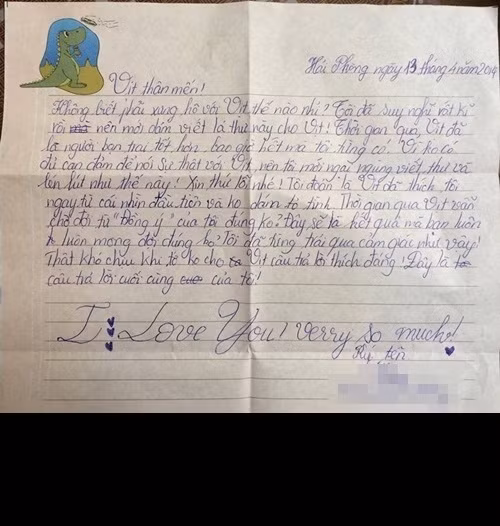 Hải Phòng ngày 13 tháng 4 năm 2014
Vịt thân mến!
Không biết phải xưng hô với Vịt thế nào nhỉ? Tôi đã suy nghĩ rất kĩ
rồi nên mới dám viết lá thư này cho Vịt! Thời gian qua, Vịt đã
là người bạn trai tốt hơn bao giờ hết mà tôi từng có. Vì ko có
đủ can đảm để nói sự thật với Vịt, nên tôi mới ngại ngùng viết thư và
lén lút như thế này! Xin thứ lỗi nhé! Tôi đoán là Vịt đã thích tôi
ngay từ cái nhìn đầu tiên và ko dám tỏ tình. Thời gian qua Vịt vẫn
chờ đợi từ "Đồng ý" của tôi đúng ko? Đây sẽ là kết quả mà bạn luôn
luôn mong đợi đúng ko? Tôi đã từng trải qua cảm giác như vậy!
Thật khó chịu khi tớ ko cho Vịt câu trả lời thích đáng! Đây là
câu trả lời cuối cùng của tôi!
I Love You! Verry so much!
Ký tên